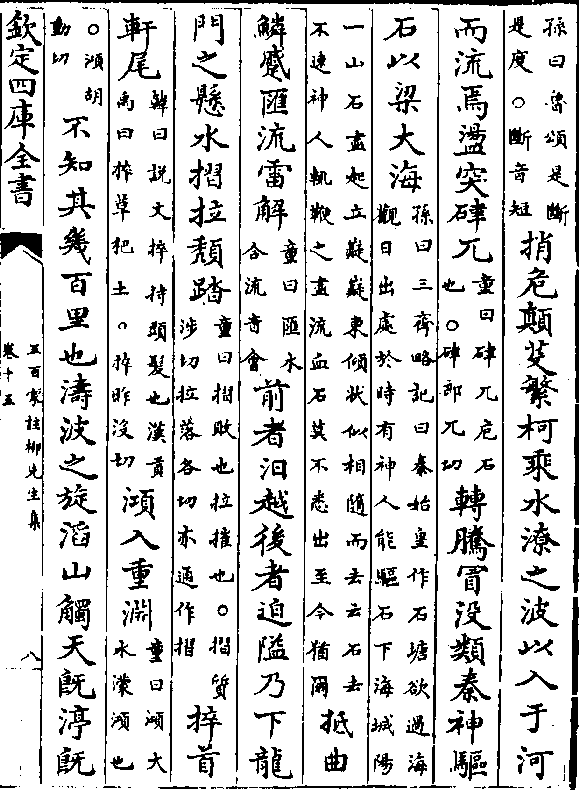 孫曰魯頌是斷
是度○斷音短
捎危顛芟繁柯乘水潦之波以入于河
而流焉盪突硉兀
童曰硉兀危石
也○硉郎兀切
轉騰冒没類秦神驅
石以梁大海
孫曰三齊略記曰秦始皇作石塘欲過海
觀日出處於時有神人能驅石下海城陽
一山石盡起立嶷嶷東傾状似相隨而去云石去
不速神人輒鞭之盡流血石莫不悉出至今猶爾
抵曲
鱗蹙匯流雷解
童曰匯水
合流音會
前者汩越後者迫隘乃下龍
門之懸水摺拉頹踏
童曰摺敗也拉摧也○摺質
涉切拉落各切亦通作摺
捽首
軒尾
韓曰説文捽持頭髮也漢貢
禹曰捽草杷土○捽昨没切
澒入重淵
童曰澒大
水濛澒也
○澒胡
動切
不知其幾百里也濤波之旋滔山觸天既渟既
欽定四庫全書
五百家註柳先生集
卷十五
八